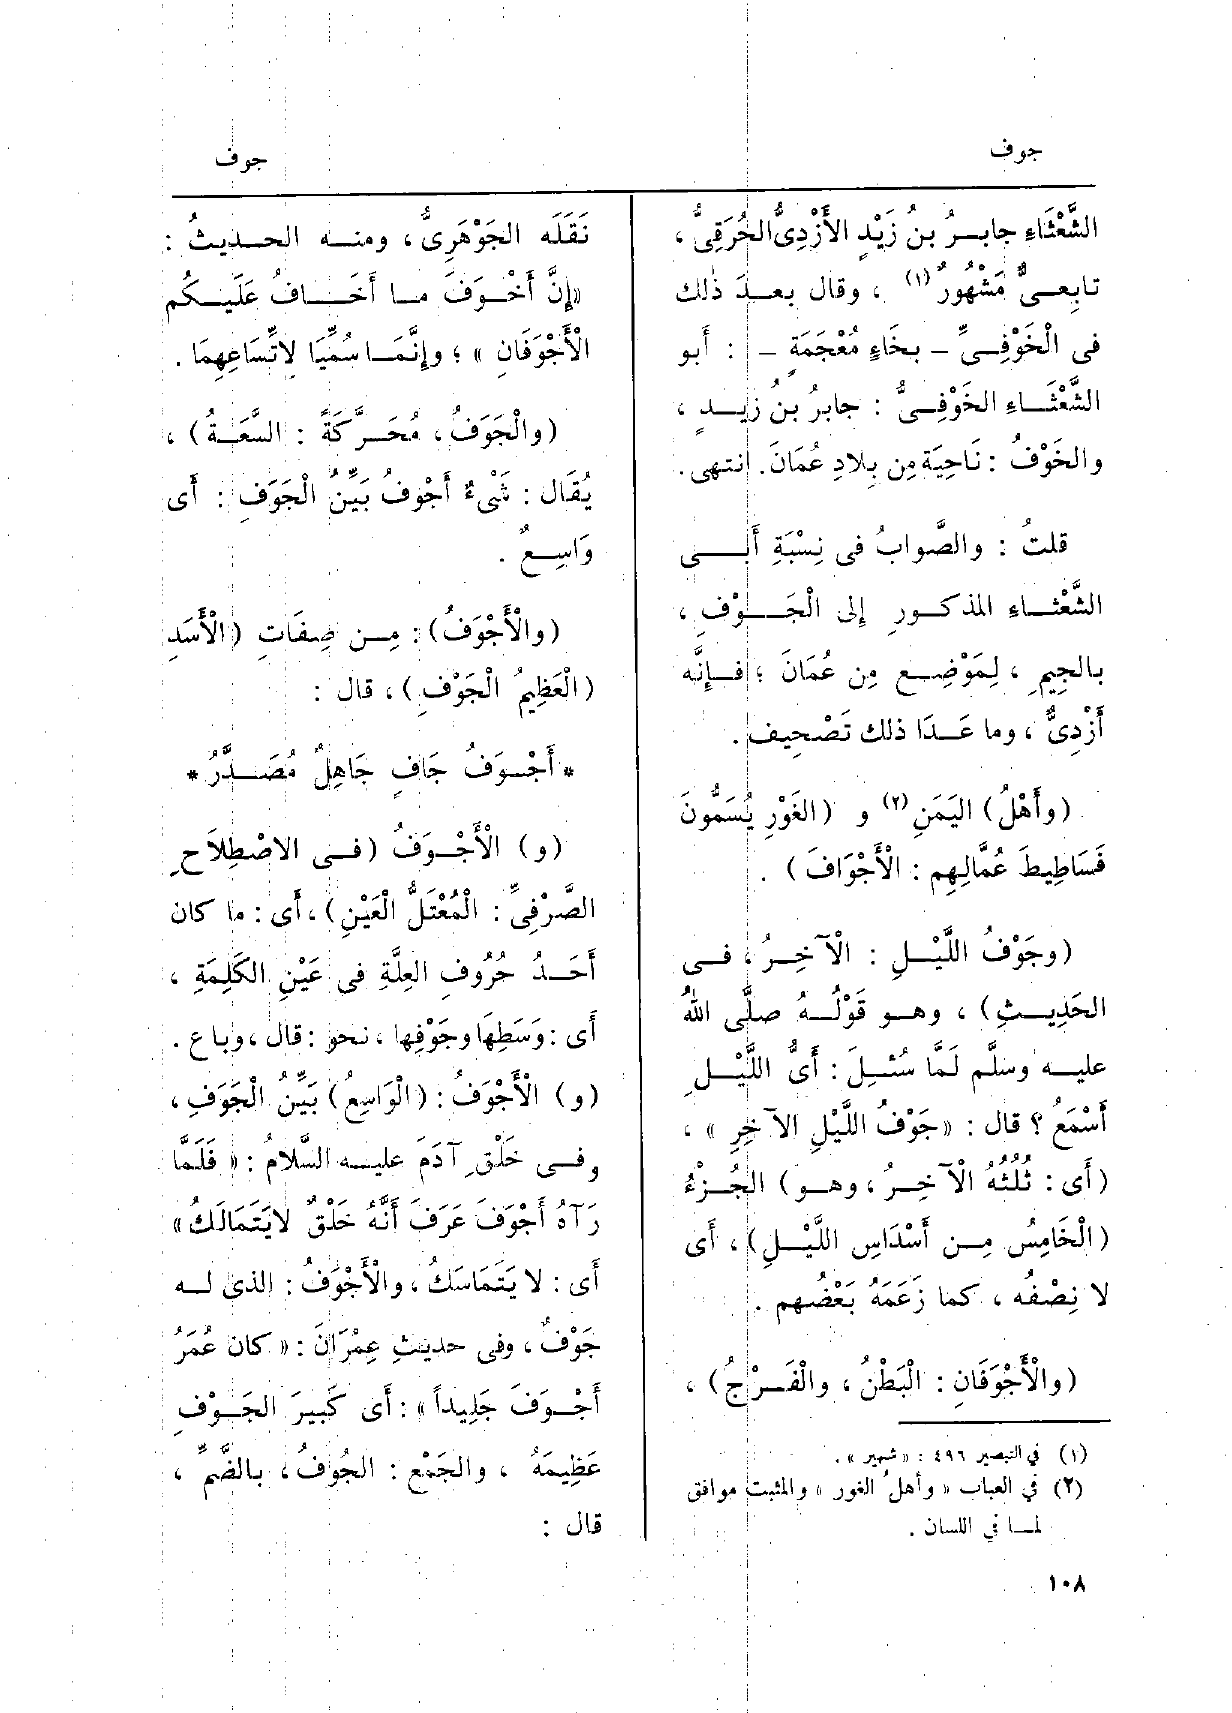 جوف
جوف
الشَّعْثَاءِ جابِرُ بنُ زَيْدٍ الأَزْدِىُّ الخُرَقِىُّ ،
تابِعىٌّ مَشْهُورٌ (١) ، وقال بعدَ ذٰلك
فى الْخَوْفِىِّ – بخَاءٍ مُعْجَمَةٍ – : أَبو
الشَّعْثَاءِ الخَوْفِىُّ : جابرُ بنُ زَيدٍ ،
والخَوْفُ : نَاحِيَة مِن بِلادِ عُمَانَ. انتهى.
قلتُ : والصَّوابُ فى نِسْبَةِ أَبى
الشَّعْثاءِ المذكورِ إلى الْجَوْفِ ،
بالجِيمِ ، لِمَوْضِعٍ مِن عُمَانَ ؛ فإِنَّه
أَزْدِىٌّ ، وما عَدَا ذلك تَصْحِيف .
(وأَهْلُ) اليَمَنِ (٢) و (الغَوْرِ يُسَمُّونَ
فَسَاطِيطَ عُمَّالِهِم : الْأَجْوَافَ) .
(وجَوْفُ اللَّيْلِ : الْآخِرُ ، فى
الحَدِيثِ) ، وهو قَوْلُهُ صلَّى اللهُ
عليه وسلَّم لَمَّا سُئِلَ : أَىُّ اللَّيْلِ
أَسْمَعُ ؟ قال : «جَوْفُ اللَّيْلِ الآخِرِ» ،
(أَى : ثُلُثُهُ الْآخِرُ ، وهو) الجُزْءُ
(الْخَامِسُ مِن أَسْدَاسِ اللَّيْلِ) ، أَى
لا نِصْفُه ، كما زَعَمَهُ بَعْضُهم .
(والْأَجْوَفَانِ : الْبَطْنُ ، والْفَرْجُ) ،
(١) في التبصير ٤٩٦ : «شهير» .
(٢) في العباب «وأهلُ الغور» والمثبت موافق
لما في اللسان .
١٠٨
نَقَلَه الجَوْهَرِىُّ ، ومنه الحديثُ :
«إِنَّ أَخْوَفَ ما أَخَافُ عَلَيكُم
الْأَجْوَفَانِ» ؛ وإِنَّمَا سُمِّيَا لِاتِّسَاعِهِمَا .
(والْجَوَفُ ، مُحَرَّكَةً : السَّعَةُ) ،
يُقَال : شَىْءٌ أَجْوَفُ بَيِّنُ الْجَوَفِ : أَى
وَاسِعٌ .
(والْأَجْوَفُ) : مِن صِفَاتِ (الْأَسَدِ
(الْعَظِيمُ الْجَوْفِ) ، قال :
* أَجْوَفُ جَافٍ جَاهِلٌ مُصَدَّرُ *
(و) الْأَجْوَفُ (فى الاصْطِلَاحِ
الصَّرْفِىِّ : الْمُعْتَلُّ الْعَيْنِ) ، أَى : ما كان
أَحَدُ حُرُوفِ العِلَّةِ فى عَيْنِ الكَلِمَةِ ،
أَى : وَسَطِهَا وجَوْفِها ، نحو : قال ، وباع .
(و) الْأَجْوَفُ : (الْوَاسِعُ) بَيِّنُ الْجَوَفِ ،
وفى خَلْقِ آدَمَ عليه السَّلامُ : « فَلَمَّا
رَآهُ أَجْوَفَ عَرَفَ أَنَّهُ خَلْقٌ لايَتَمَالَكُ»
أَى : لا يَتَمَاسَكُ ، والْأَجْوَفُ : الذى له
جَوْفٌ ، وفى حديثِ عِمْرَانَ : « كان عُمَرُ
أَجْوَفَ جَلِيداً » : أَى كَبِيرَ الجَوْفِ
عَظِيمَهُ ، والجَمْع : الجُوفُ ، بالضَّمِّ ،
قال :